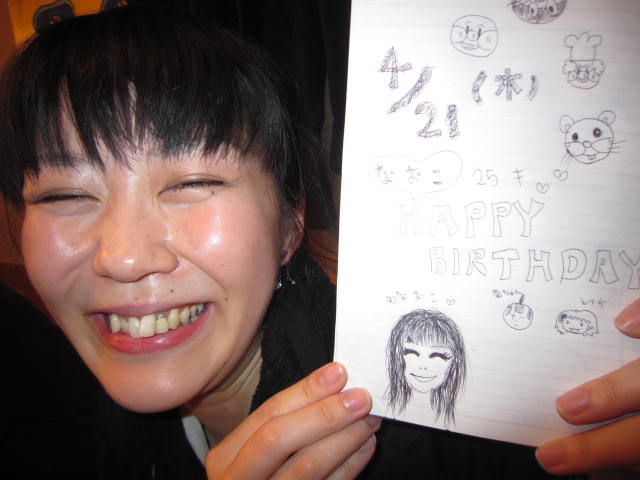 4/21 (木)
なおこ 25才
HAPPY
BIRTHDAY
なおこ